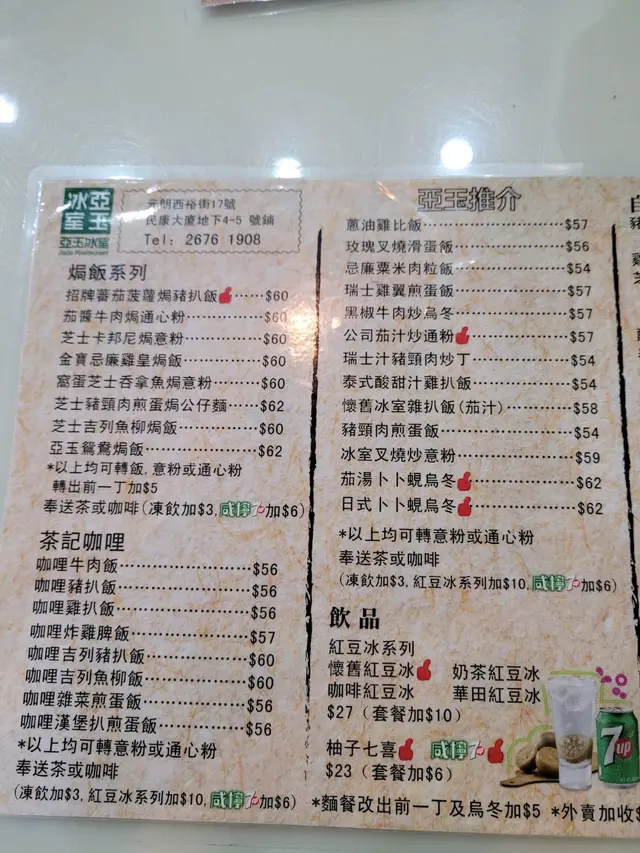 亞玉
冰室
亞玉冰室
元朗西裕街17號
民康大廈地下4-5 號鋪
Tel: 2676 1908
焗飯系列
招牌蕃茄菠蘿焗豬扒飯……$60
茄醬牛肉焗通心粉…………$60
芝士卡邦尼焗意粉…………$60
金寶忌廉雞皇焗飯…………$60
窩蛋芝士吞拿魚焗意粉……$60
芝士豬頸肉煎蛋焗公仔麵…$62
芝士吉列魚柳焗飯…………$60
亞玉鴛鴦焗飯………………$62
*以上均可轉飯,意粉或通心粉
轉出前一丁加$5
奉送茶或咖啡(凍飲加$3,咸檸7加$6)
茶記咖哩
咖哩牛肉飯…………………$56
咖哩豬扒飯…………………$56
咖哩雞扒飯…………………$56
咖哩炸雞脾飯………………$57
咖哩吉列豬扒飯……………$60
咖哩吉列魚柳飯……………$60
咖哩雜菜煎蛋飯……………$56
咖哩漢堡扒煎蛋飯…………$56
*以上均可轉意粉或通心粉
奉送茶或咖啡
(凍飲加$3,紅豆冰系列加$10,咸檸7加$6)
亞玉推介
蔥油雞比飯…………………$57
玫瑰叉燒滑蛋飯……………$56
忌廉粟米肉粒飯……………$54
瑞士雞翼煎蛋飯……………$57
黑椒牛肉炒烏冬……………$57
公司茄汁炒通粉……………$57
瑞士汁豬頸肉炒丁…………$54
泰式酸甜汁雞扒飯…………$54
懷舊冰室雜扒飯(茄汁)……$58
豬頸肉煎蛋飯………………$54
冰室叉燒炒意粉……………$59
茄湯卜卜蜆烏冬……………$62
日式卜卜蜆烏冬……………$62
*以上均可轉意粉或通心粉
奉送茶或咖啡
(凍飲加$3,紅豆冰系列加$10,咸檸7加$6)
飲品
紅豆冰系列
懷舊紅豆冰 奶茶紅豆冰
咖啡紅豆冰 華田紅豆冰
$27 (套餐加$10)
柚子七喜 咸檸7
$23 (套餐加$6)
7up
*麵餐改出前一丁及烏冬加$5 *外賣加收$